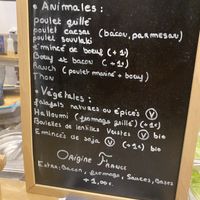 • Animales :
poulet grillé
poulet caesar (bacon, parmesan)
poulet souvlaki
émincé de boeuf (+1€)
Boeuf et bacon (+1€)
Ranch (poulet mariné + boeuf)
Thon
• Végétales :
falafels natures ou épicés V
Halloumi (fromage grillé) (+1€)
Boulettes de lentilles V bio
Émincés de soja V (+1€) bio
Origine France
Extra, Bacon, fromage, Sauces, Bases
+ 1,00€.